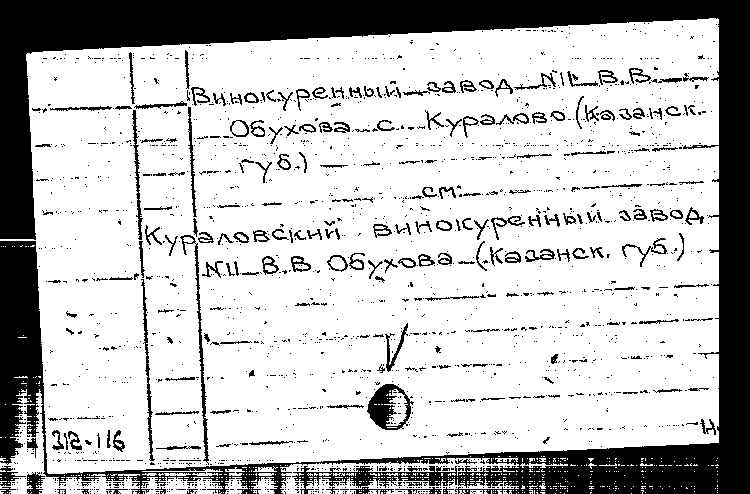 Винокуренный завод N11 В.В.
Обухова с. Куралово (Казанск.
губ.)
см:
Кураловский винокуренный завод
N11 В.В. Обухова (Казанск. губ.)
312-116